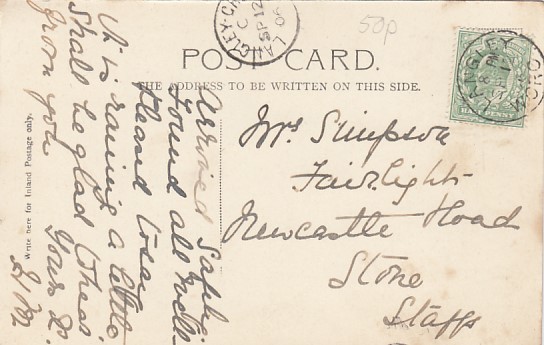 50p
LANGLEY
C
SP 12
06
POST CARD.
THE ADDRESS TO BE WRITTEN ON THIS SIDE.
Write here for Inland Postage only.
Arrived Safely
Found all well
pleased to see
It is raining a little
Shall be glad to hear
from you
Yours
Mrs Simpson
Fairlight
Newcastle Road
Stone
Staffs
LANGLEY
HALF PENNY